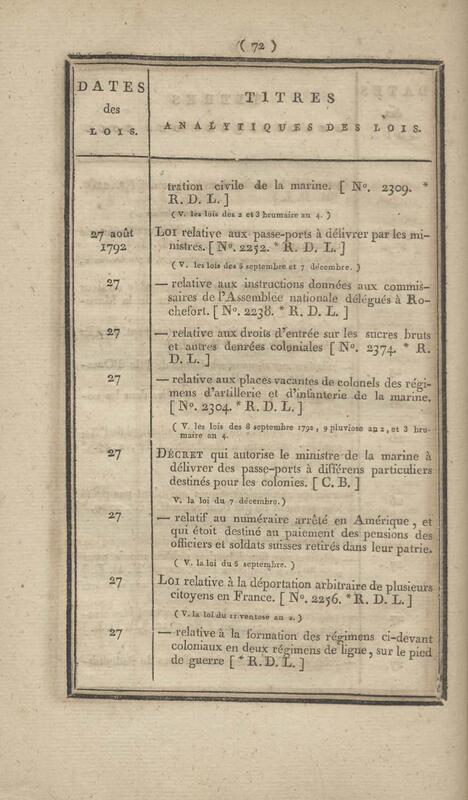 ( 72 )
DATES
des
LOIS.
TITRES
ANALYTIQUES DES LOIS.
tration civile de la marine. [ No. 2309. *
R. D. L. ]
( V. les lois des 2 et 3 brumaire an 4. )
27 août
1792
LOI relative aux passe-ports à délivrer par les mi-
nistres. [ No. 2252. * R. D. L. ]
( V. les lois des 5 septembre et 7 décembre. )
27
— relative aux instructions données aux commis-
saires de l'Assemblée nationale délégués à Ro-
chefort. [ No. 2238. * R. D. L. ]
27
— relative aux droits d'entrée sur les sucres bruts
et autres denrées coloniales [ No. 2374. * R.
D. L. ]
27
— relative aux places vacantes de colonels des régi-
mens d'artillerie et d'infanterie de la marine.
[ No. 2304. * R. D. L. ]
( V. les lois des 8 septembre 1792, 9 pluviose an 2, et 3 bru-
maire an 4.
27
DÉCRET qui autorise le ministre de la marine à
délivrer des passe-ports à différens particuliers
destinés pour les colonies. [ C. B. ]
V. la loi du 7 décembre. )
27
— relatif au numéraire arrêté en Amérique, et
qui étoit destiné au paiement des pensions des
officiers et soldats suisses retirés dans leur patrie.
( V. la loi du 5 septembre. )
27
LOI relative à la déportation arbitraire de plusieurs
citoyens en France. [ No. 2256. * R. D. L. ]
( V. la loi du 11 ventose an 2. )
27
— relative à la formation des régimens ci-devant
coloniaux en deux régimens de ligne, sur le pied
de guerre [ * R. D. L. ]